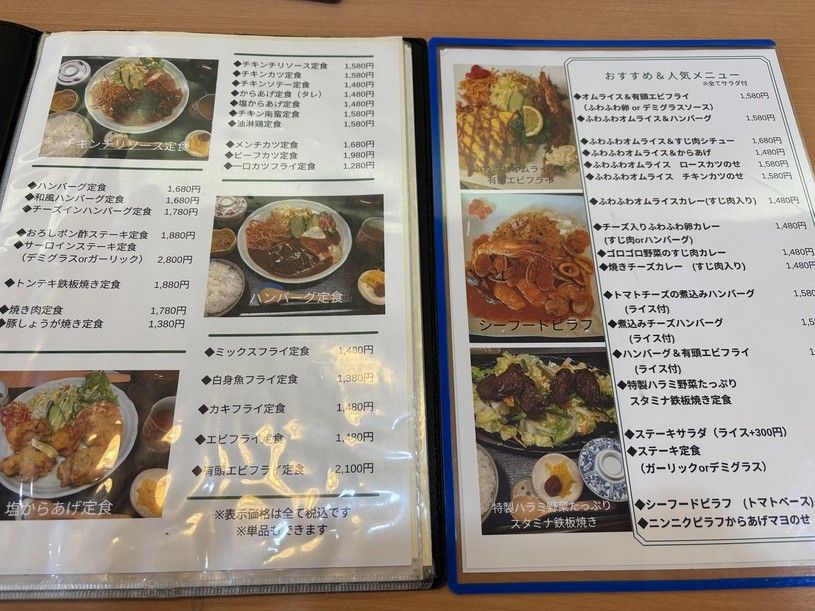 ◆チキンチリソース定食 1,580円
◆チキンカツ定食 1,580円
◆チキンソテー定食 1,480円
◆からあげ定食（タレ） 1,480円
◆塩からあげ定食 1,480円
◆チキン南蛮定食 1,580円
◆油淋鶏定食 1,580円
◆メンチカツ定食 1,680円
◆ビーフカツ定食 1,980円
◆一口カツフライ定食 1,280円
チキンチリソース定食
◆ハンバーグ定食 1,680円
◆和風ハンバーグ定食 1,680円
◆チーズインハンバーグ定食 1,780円
◆おろしポン酢ステーキ定食 1,880円
◆サーロインステーキ定食
（デミグラスorガーリック） 2,800円
◆トンテキ鉄板焼き定食 1,880円
◆焼き肉定食 1,780円
◆豚しょうが焼き定食 1,380円
ハンバーグ定食
塩からあげ定食
◆ミックスフライ定食 1,480円
◆白身魚フライ定食 1,380円
◆カキフライ定食 1,480円
◆エビフライ定食 1,480円
◆有頭エビフライ定食 2,100円
※表示価格は全て税込です
※単品もできます
おすすめ＆人気メニュー
※全てサラダ付
◆オムライス＆有頭エビフライ 1,580円
（ふわふわ卵 or デミグラスソース）
◆ふわふわオムライス＆ハンバーグ 1,580円
◆ふわふわオムライス＆すじ肉シチュー 1,680円
◆ふわふわオムライス＆からあげ 1,480円
◆ふわふわオムライス ロースカツのせ 1,580円
◆ふわふわオムライス チキンカツのせ 1,580円
◆ふわふわオムライスカレー(すじ肉入り) 1,480円
◆チーズ入りふわふわ卵カレー 1,480円
(すじ肉orハンバーグ)
◆ゴロゴロ野菜のすじ肉カレー 1,480円
◆焼きチーズカレー (すじ肉入り) 1,480円
◆トマトチーズの煮込みハンバーグ 1,580
(ライス付)
◆煮込みチーズハンバーグ
(ライス付)
◆ハンバーグ＆有頭エビフライ
(ライス付)
◆特製ハラミ野菜たっぷり
スタミナ鉄板焼き定食
◆ステーキサラダ（ライス+300円）
◆ステーキ定食
（ガーリックorデミグラス）
◆シーフードピラフ (トマトベース)
◆ニンニクピラフからあげマヨのせ
ふわふわオムライス＆
有頭エビフライ
シーフードピラフ
特製ハラミ野菜たっぷり
スタミナ鉄板焼き